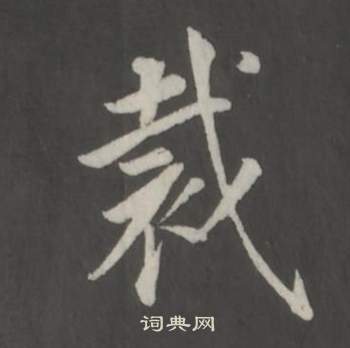 裁
词典网